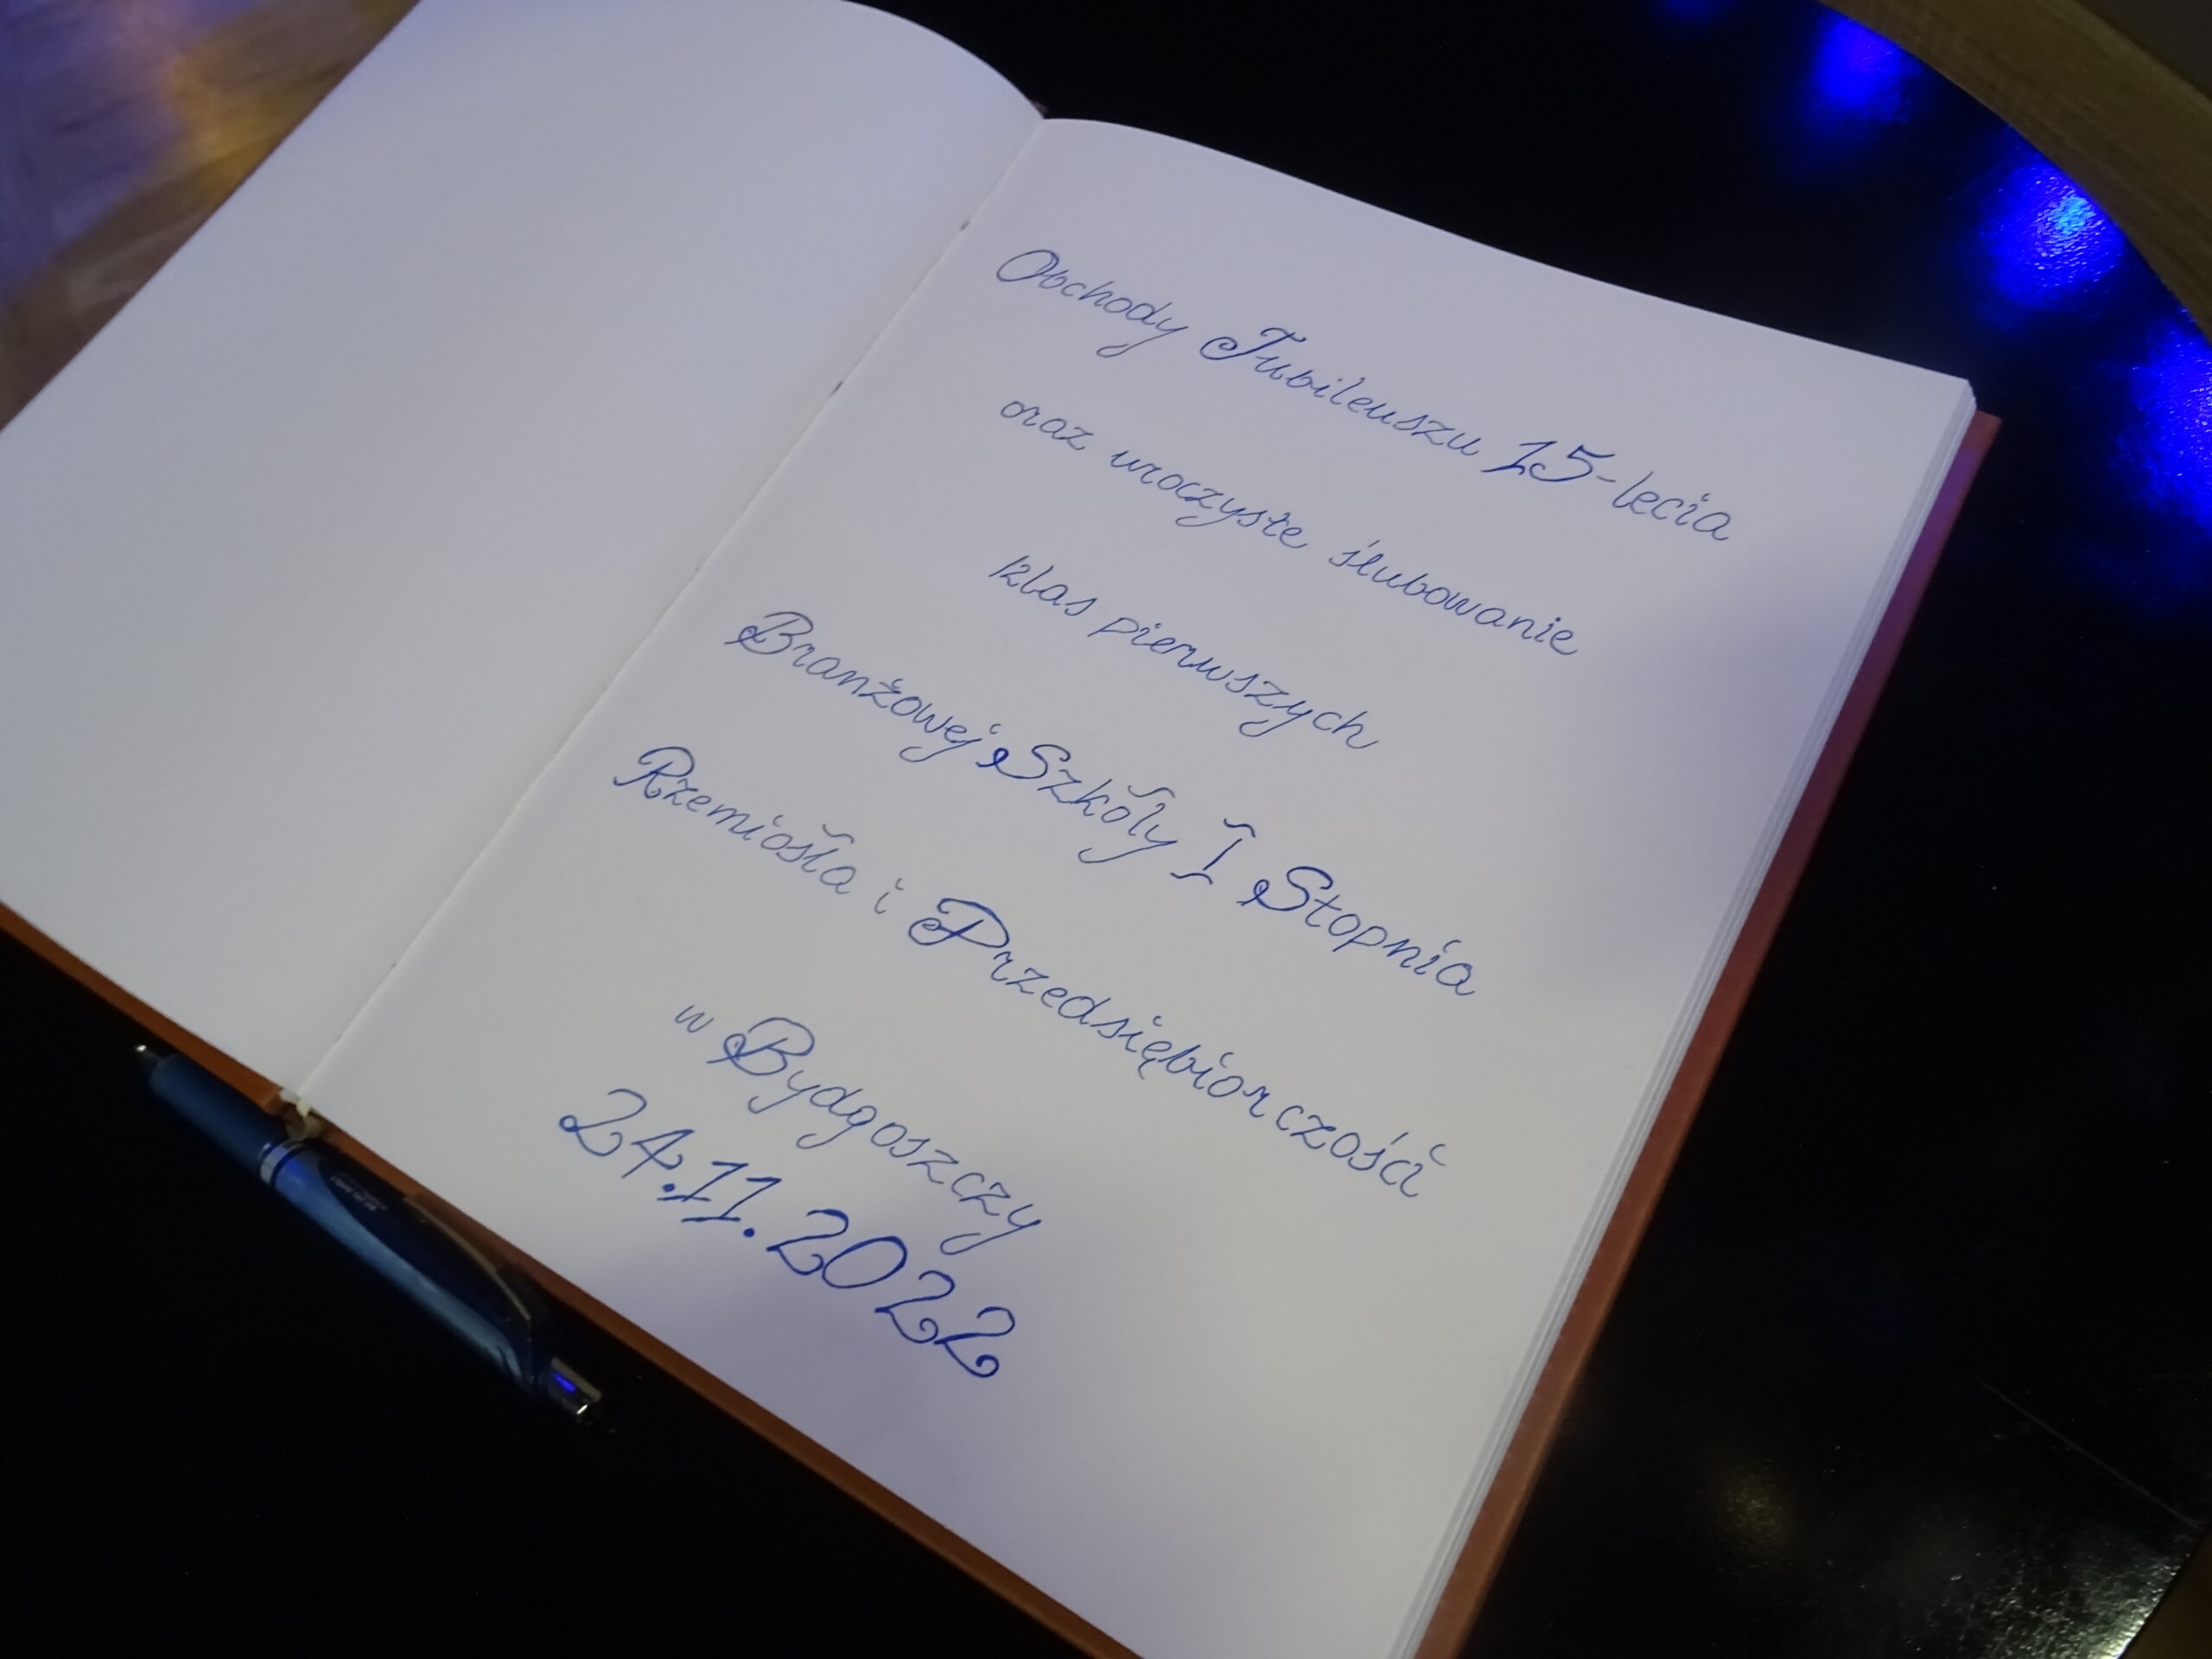 Obchody Jubileuszu 15-lecia
oraz uroczyste ślubowanie
klas pierwszych
Branżowej Szkoły I Stopnia
Rzemiosła i Przedsiębiorczości
w Bydgoszczy
24.11.2022